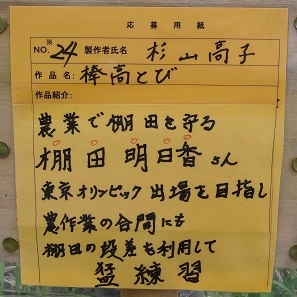 応募用紙
※
NO. 24 製作者氏名 杉山高子
作品名: 棒高とび
作品紹介:
農業で棚田を守る
棚田明日香さん
東京オリンピック出場を目指し
農作業の合間にも
棚田の段差を利用して
猛練習